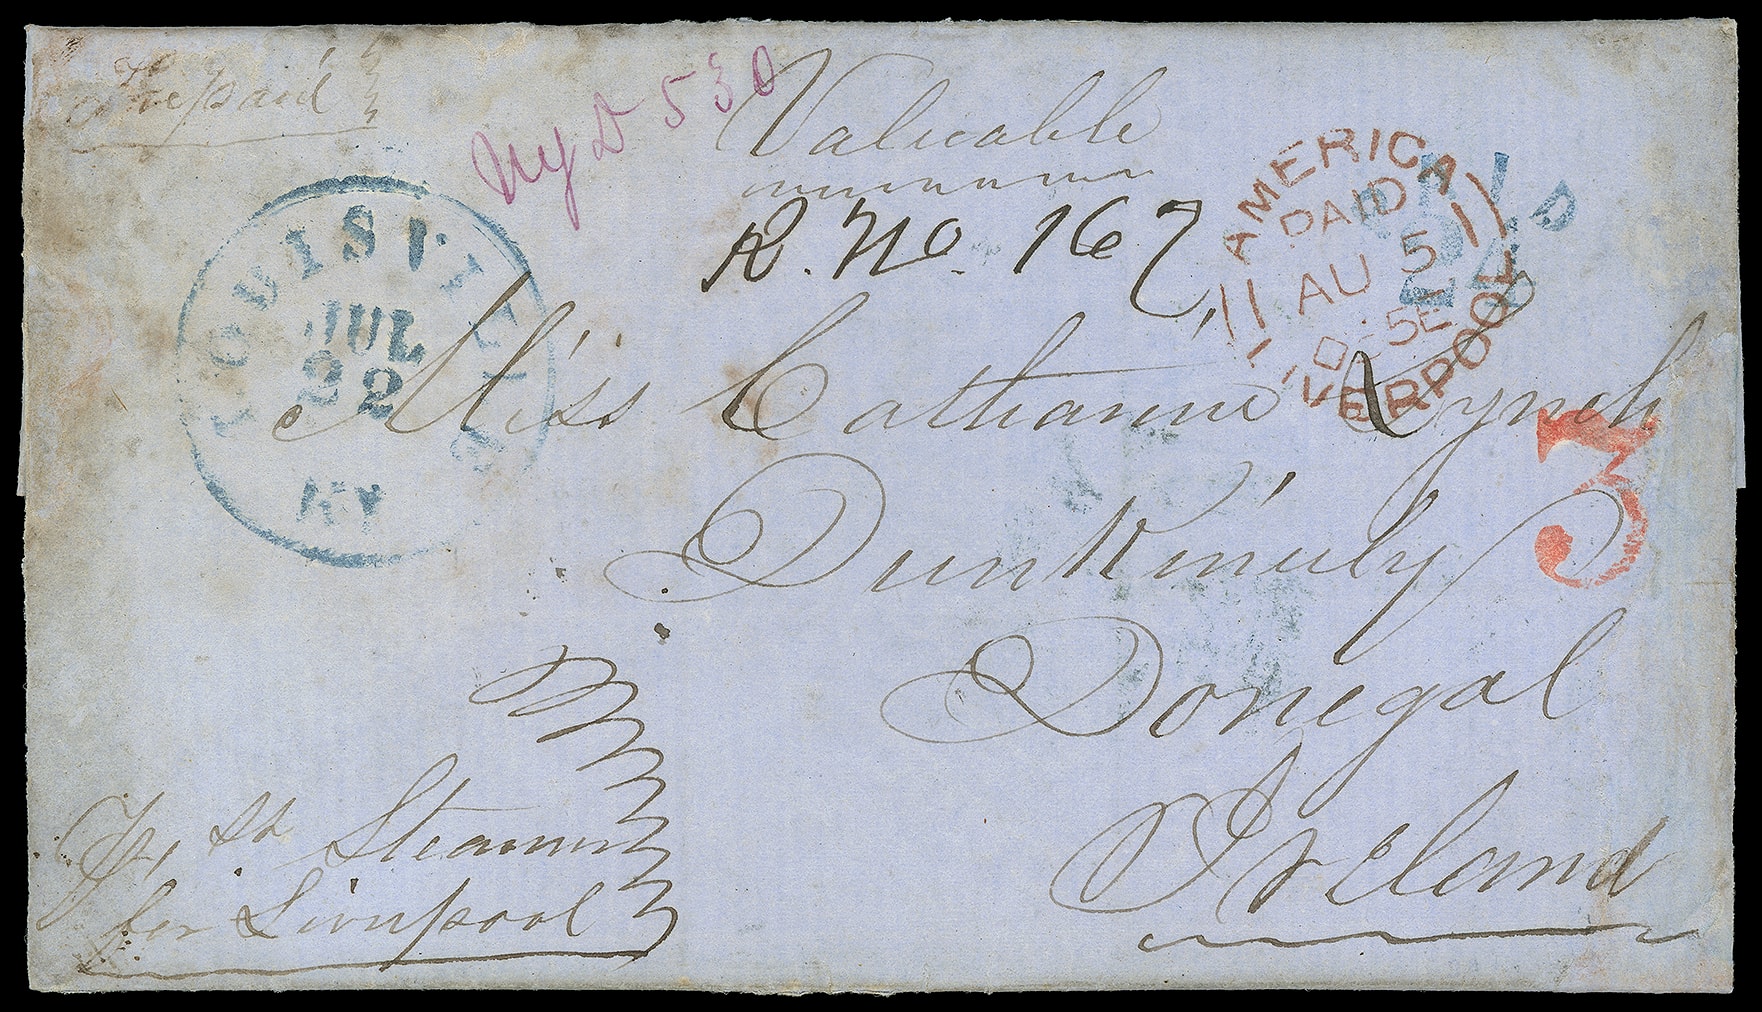 Prepaid
NYD 530
Valuable
R. No. 167
LOUISVILLE
JUL
22
KY
AMERICA
PAID
AU 5
LIVERPOOL
PAID
24
3
Miss Catharine Lynch
Dunkinuly
Donegal
Ireland
Steamer
for Liverpool